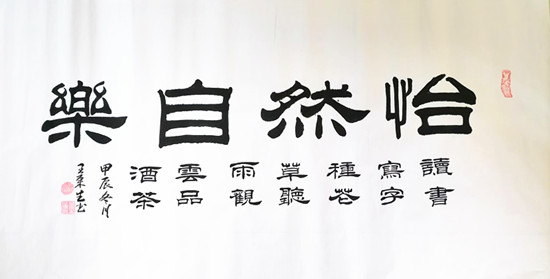 怡然自樂
讀書
寫字
種花
草聽
雨観
雲品
酒茶
甲辰冬月